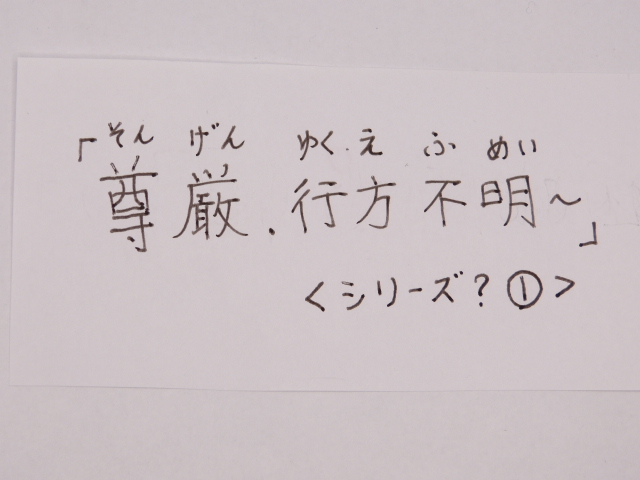 そん げん ゆく え ふ めい
「尊厳.行方不明~」
<シリーズ?①>